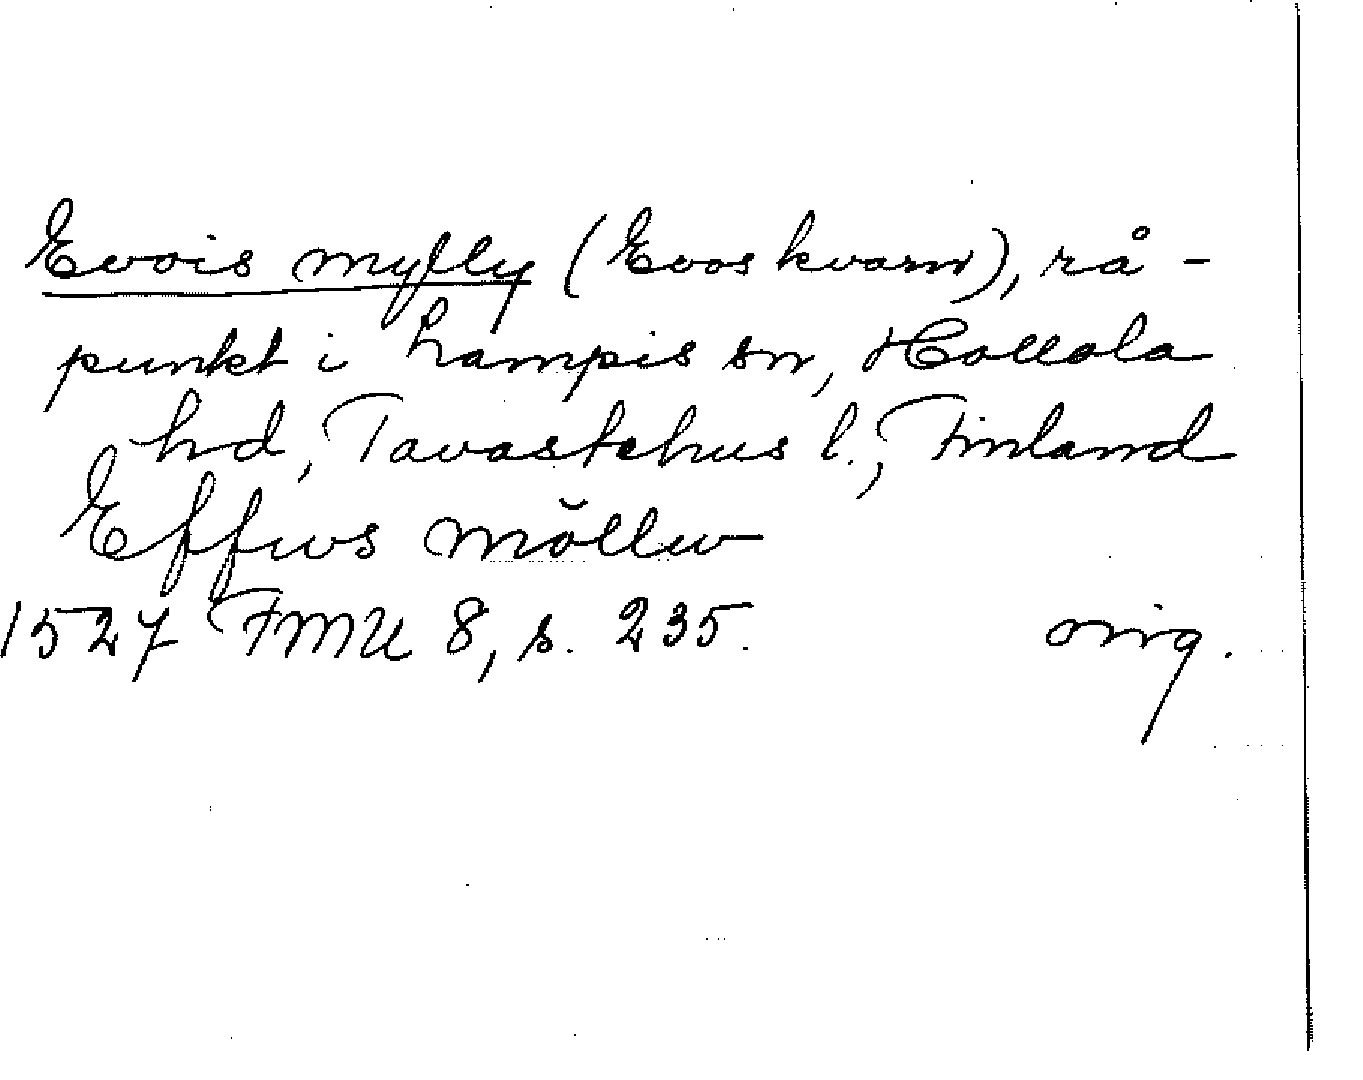 Evois myfly (Evos kvarn), rå-
punkt i Lampis sn, Hollola
hd, Tavastehus l., Finland
Effws möllw
1527 FMU 8, s. 235. orig.